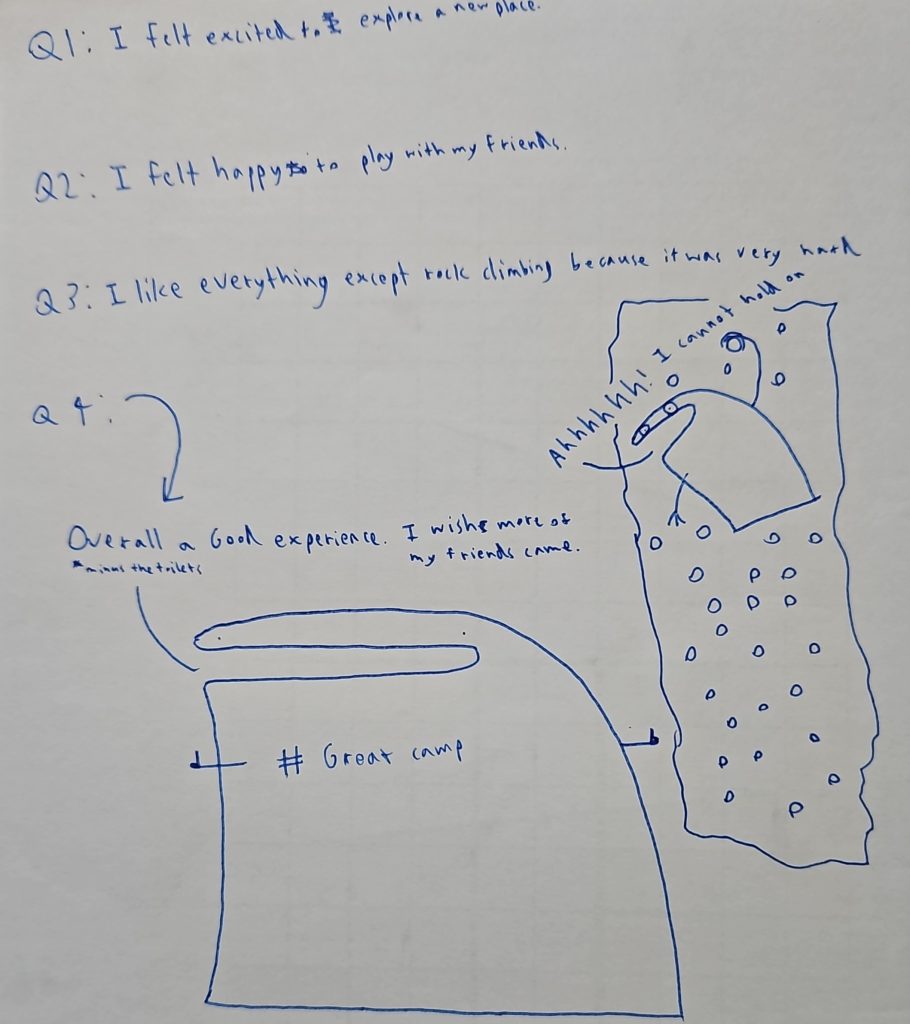 Q1: I felt excited to explore a new place.
Q2: I felt happy to play with my friends.
Q3: I like everything except rock climbing because it was very hard
Ahhhhhh! I cannot hold on
Q4:
Overall a Good experience. I wish more of
my friends came.
*minus the toilets
# Great camp